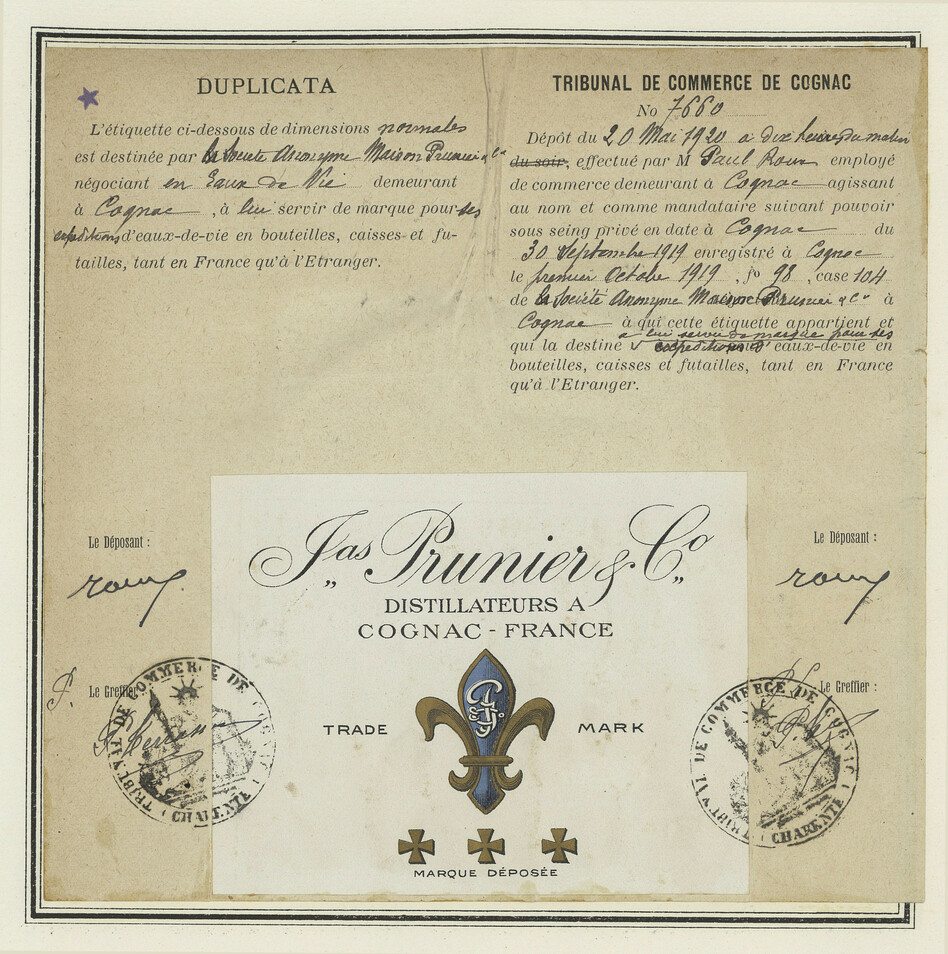 DUPLICATA
L'étiquette ci-dessous de dimensions normales
est destinée par la Société Anonyme Maison Prunier & Co
négociant en Eaux de Vie demeurant
à Cognac, à lui servir de marque pour ses
expéditions d'eaux-de-vie en bouteilles, caisses et fu-
tailles, tant en France qu'à l'Etranger.
TRIBUNAL DE COMMERCE DE COGNAC
No 7660
Dépôt du 20 Mai 1920 a dix heures du matin
du soir, effectué par M Paul Roux employé
de commerce demeurant à Cognac agissant
au nom et comme mandataire suivant pouvoir
sous seing privé en date à Cognac du
30 Septembre 1919 enregistré à Cognac
le premier Octobre 1919, fo 98, case 104
de la Société Anonyme Maison Prunier & Co à
Cognac à qui cette étiquette appartient et
qui la destine a lui servir de marque pour ses
expéditions d'eaux-de-vie en
bouteilles, caisses et futailles, tant en France
qu'à l'Etranger.
Le Déposant :
roux
Le Greffier :
TRIBVNAL DE COMMERCE DE COGNAC
CHARENTE
Jas Prunier & Co
DISTILLATEURS A
COGNAC - FRANCE
TRADE MARK
MARQUE DÉPOSÉE
Le Déposant :
roux
Le Greffier :
TRIBVNAL DE COMMERCE DE COGNAC
CHARENTE